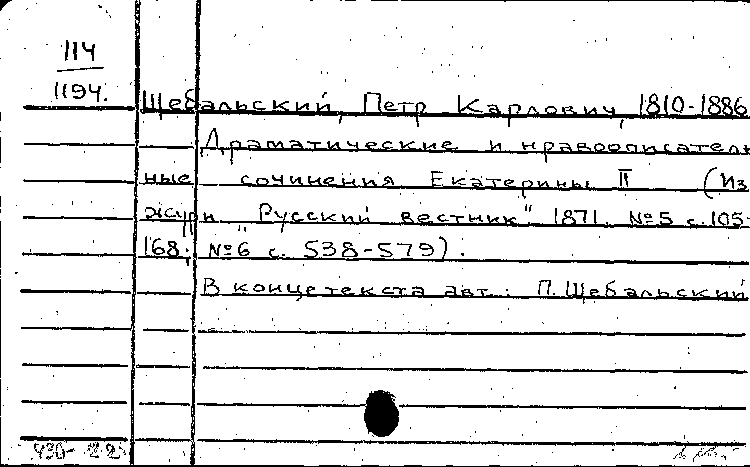 114
1194.
Щебальский, Петр Карлович, 1810-1886
Драматические и нравоописатель
ные сочинения Екатерины II (Из
журн. "Русский вестник" 1871. №5 с. 105-
168; №6 с. 538-579).
В конце текста авт.: П. Щебальский